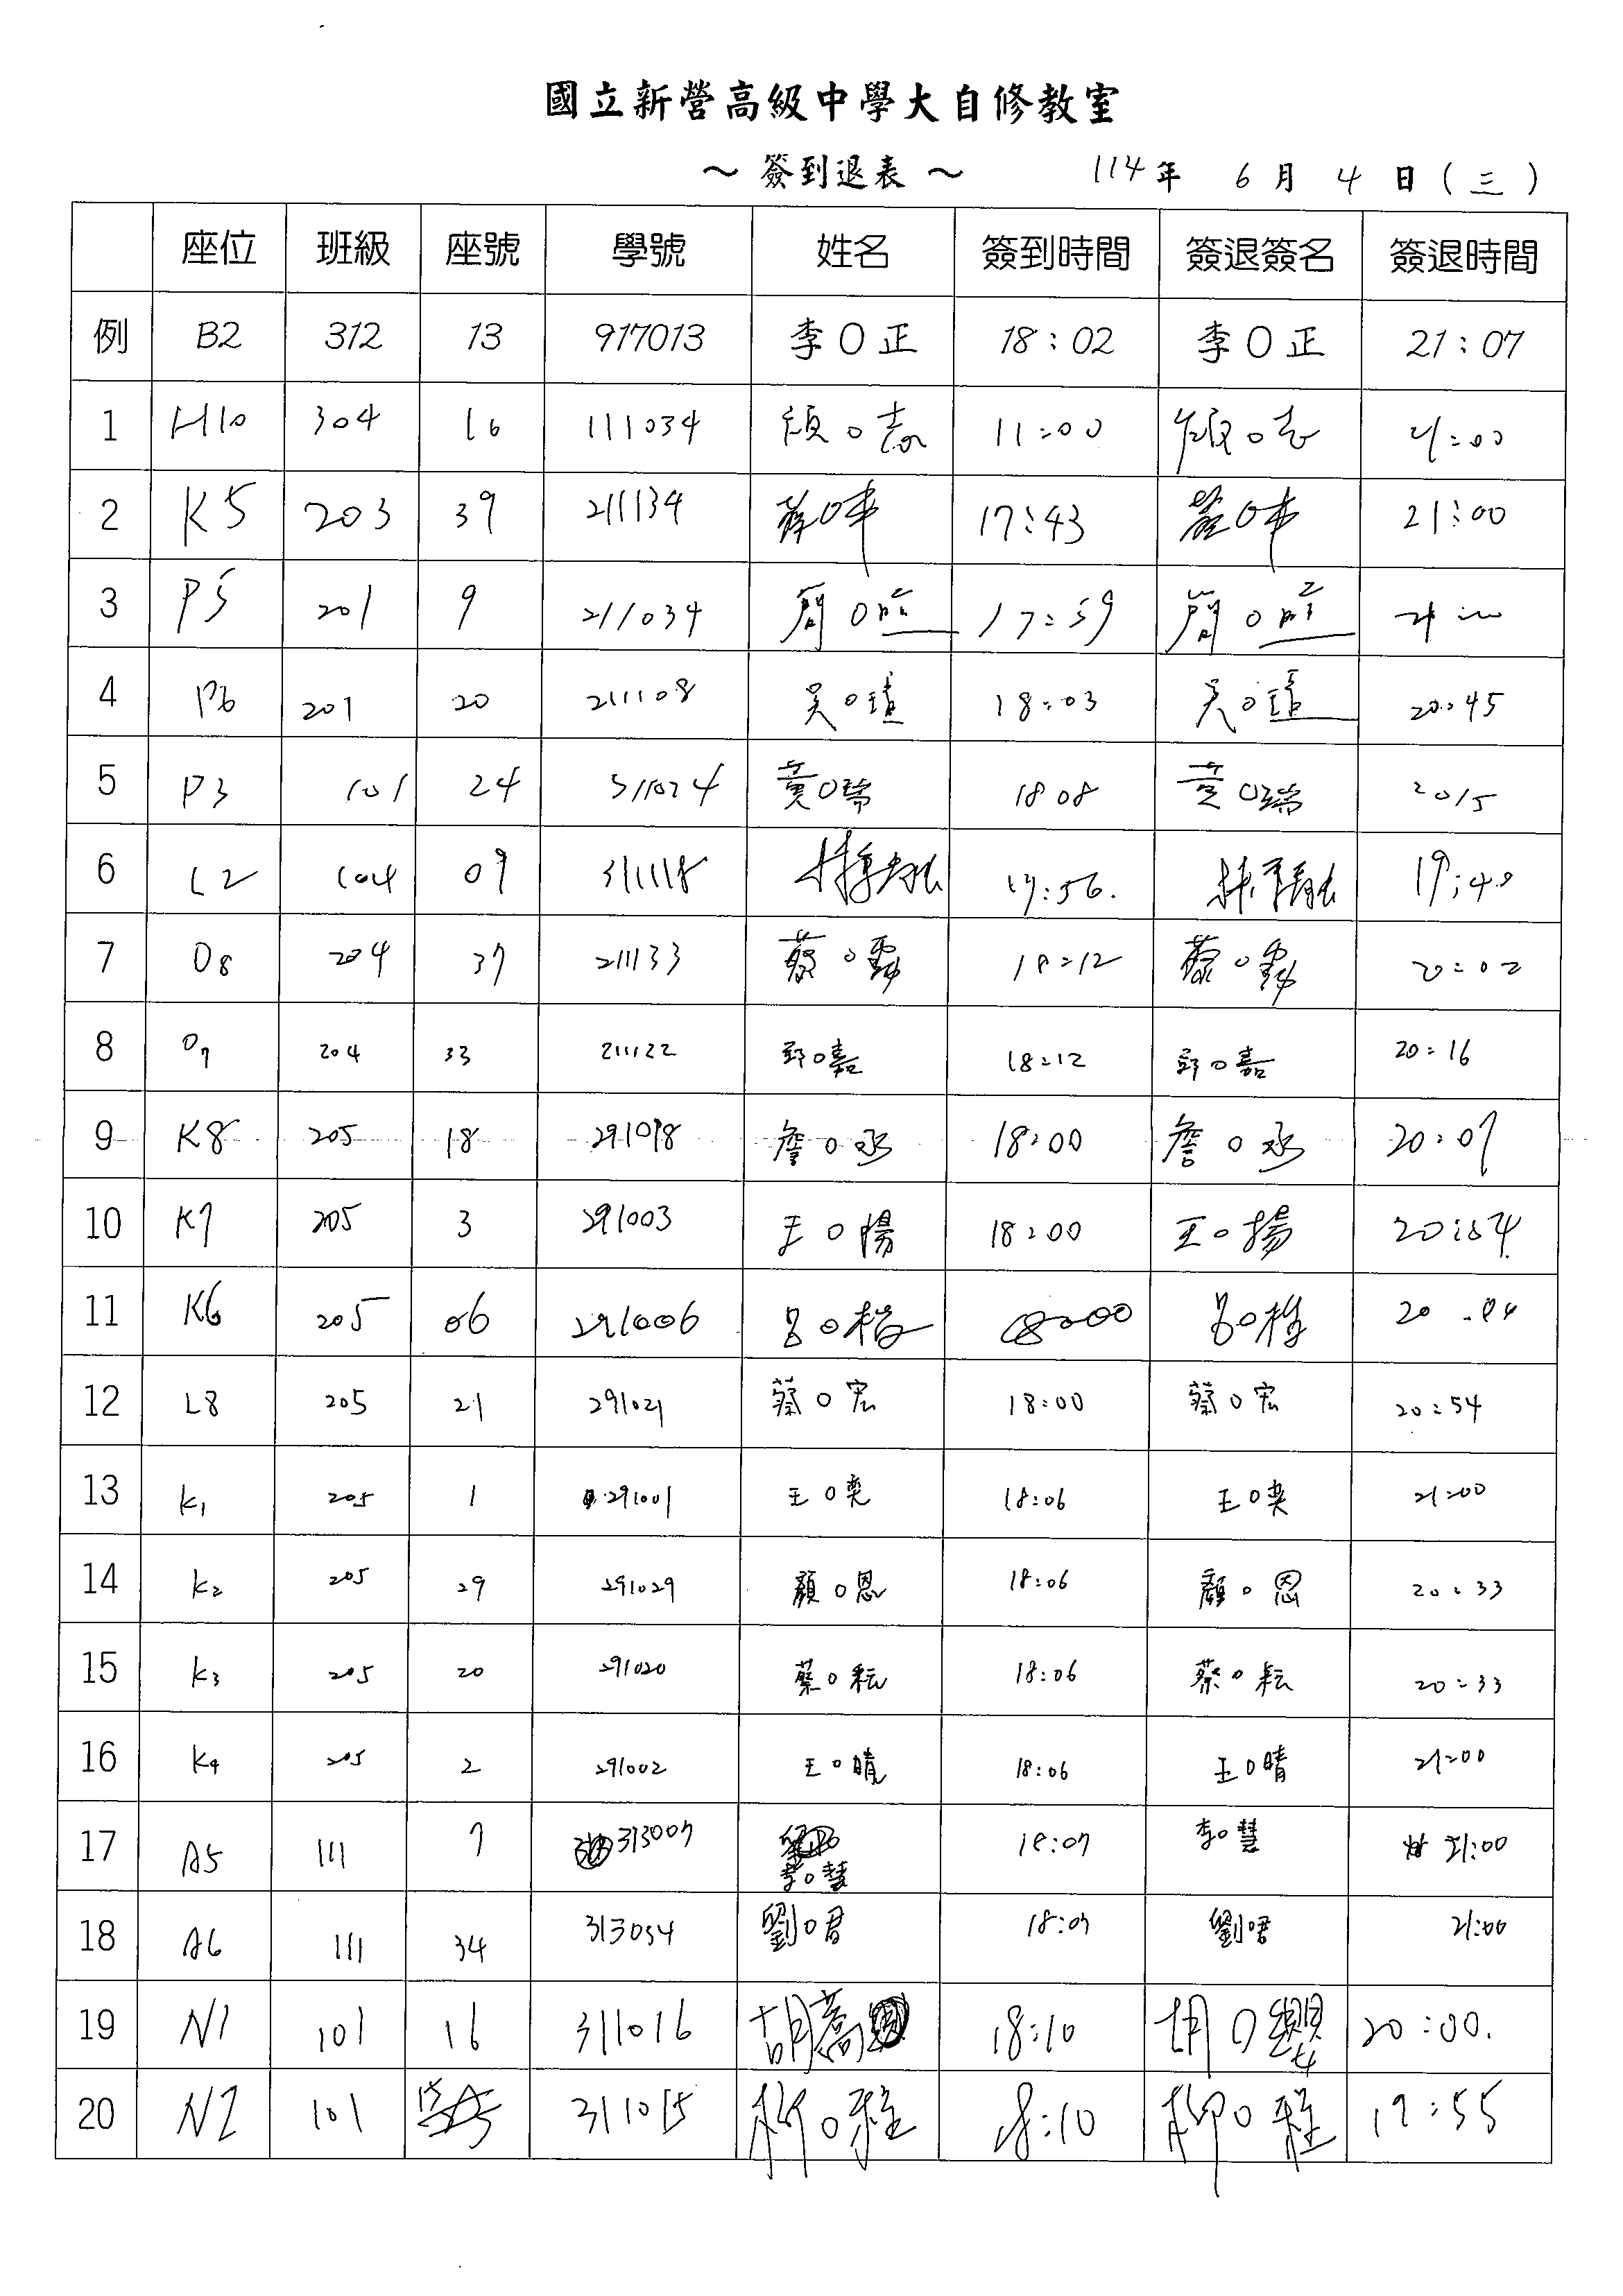 國立新營高級中學大自修教室
～ 簽到退表 ～ 114年 6月 4日(三)
座位 班級 座號 學號 姓名 簽到時間 簽退簽名 簽退時間
例 B2 312 13 917013 李O正 18:02 李O正 21:07
1 H10 304 16 111034 O志 11:00 O志 21:00
2 K5 203 39 211134 蔡O 17:43 蔡O 21:00
3 P5 201 9 211034 簡O 17:59 簡O
4 P6 201 20 211108 吳O瑄 18:03 吳O瑄 20:45
5 P3 101 24 311024 黃O瑞 18 08 黃O瑞 2015
6 L2 104 09 311118 林 17:56. 林 19:40
7 O8 204 37 211133 蔡O 18:12 蔡O 20:02
8 O7 204 33 211122 O嘉 18:12 O嘉 20:16
9 K8 205 18 291018 詹O丞 18:00 詹O丞 20:07
10 K7 205 3 291003 王O揚 18:00 王O揚 20:54
11 K6 205 06 291006 呂O楷 18:00 呂O楷 20
12 L8 205 21 291021 蔡O宏 18:00 蔡O宏 20:54
13 K1 205 1 291001 王O奕 18:06 王O奕 21:00
14 K2 205 29 291029 顏O恩 18:06 顏O恩 20:33
15 K3 205 20 291020 蔡O耘 18:06 蔡O耘 20:33
16 K4 205 2 291002 王O晴 18:06 王O晴 21:00
17 A5 111 7 313007 李O慧 18:07 李O慧 21:00
18 A6 111 34 313034 劉O君 18:07 劉O君 21:00
19 N1 101 16 311016 胡 18:10 胡O 20:00.
20 N2 101 311015 柳O程 18:10 柳O程 19:55